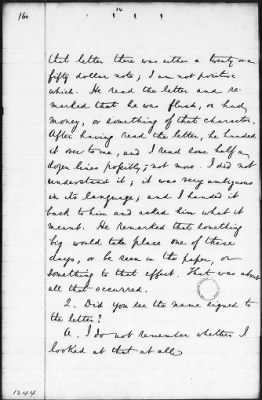 160
24
that letter there was either a twenty or a
fifty dollar note; I am not positive
which. He read the letter and re-
marked that he was flush, or had
money, or something of that character.
After having read the letter, he handed
it over to me, and I read some half a
dozen lines possibly; not more. I did not
understand it; it was very ambiguous
in its language; and I handed it
back to him and asked him what it
meant. He remarked that something
big would take place one of these
days, or be seen in the paper, or
something to that effect. That was about
all that occurred.
Q. Did you see the name signed to
the letter?
A. I do not remember whether I
looked at that at all
1244